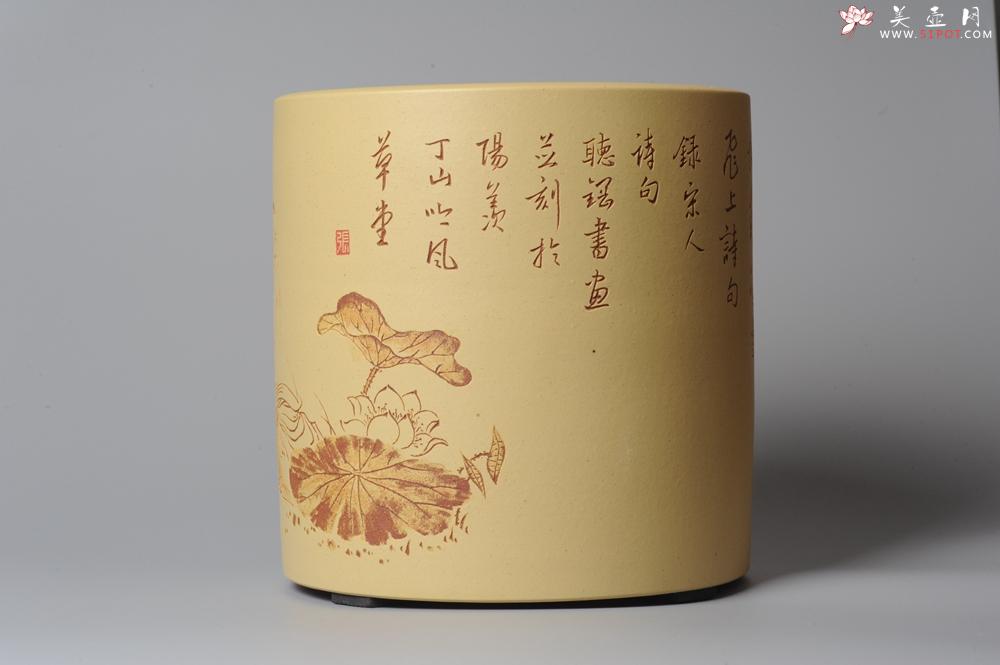 飛上詩句
錄宋人
詩句
聽鎾書畫
並刻於
陽羨
丁山吟風
草堂
張
美壶网
WWW.51POT.COM